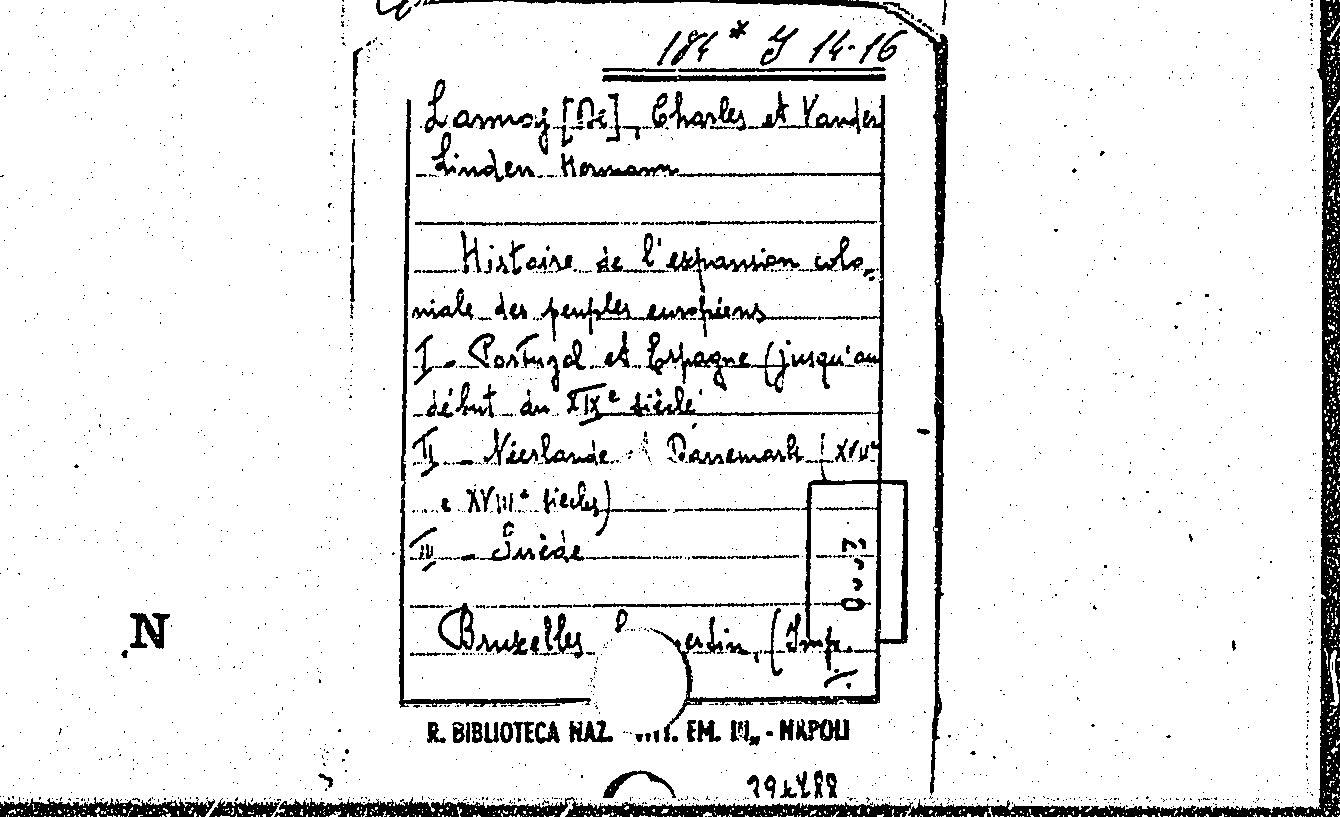 184* J 14-16
Lannoy [De], Charles et Vander
Linden Hermann
Histoire de l'expansion colo-
niale des peuples européens
I - Portugal et Espagne (jusqu'au
début du XIXe siècle
II - Néerlande Danemark (XVIIe
e XVIII e siècles)
III - Suède
Bruxelles (Imp.
R. BIBLIOTECA NAZ. EM. III„ - NAPOLI
N